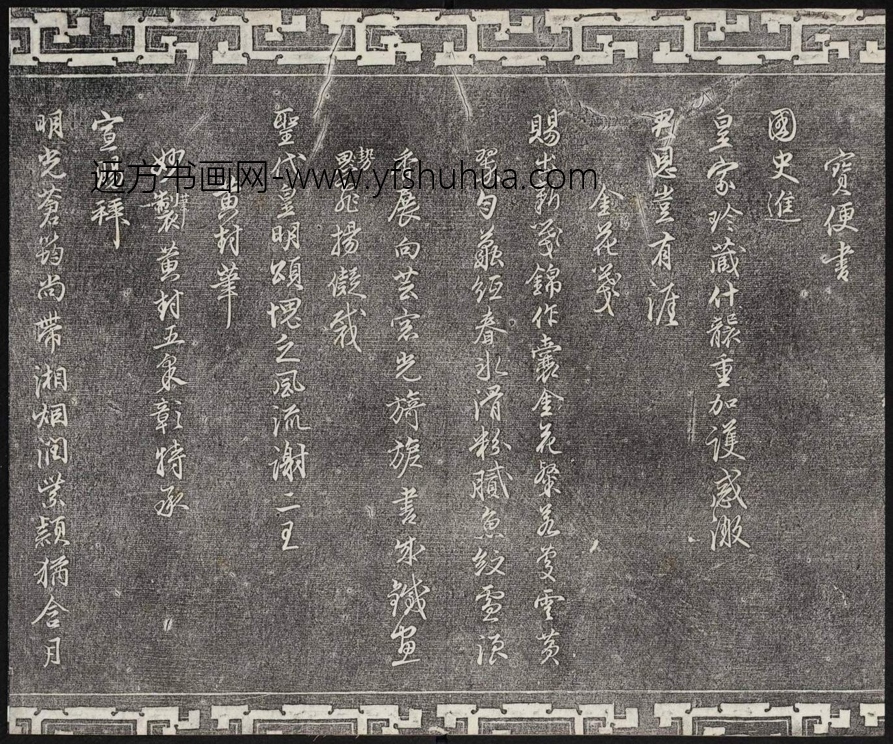 寶便書
國史進
皇家珍藏什襲重加護感激
君恩豈有涯
金花箋
賜出新箋錦作囊金花粲若慶雲黃
翠勻蘸經春水滑粉膩魚紋雪浪
香展向芸窓光旖旎書成鐵畫
勢飛揚儗裁
聖代皇明頌愧乏風流謝二王
黃封筆
妙製黃封五采彰特承
宣賜拜
明光蒼筠尚帶湘烟潤紫穎猶含月
远方书画网-www.yfshuhua.com